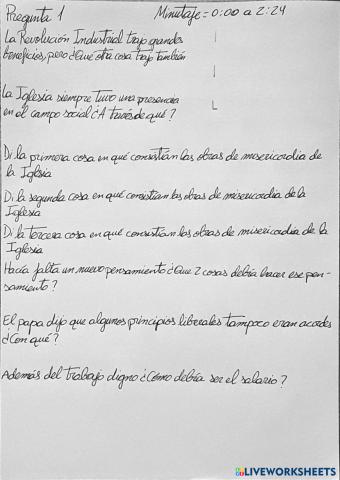 Pregunta 1 Minutaje = 0:00 a 2:24
La Revolución Industrial trajo grandes
beneficios, pero ¿Qué otra cosa trajo también
La Iglesia siempre tuvo una presencia
en el campo social ¿A través de qué?
Di la primera cosa en qué consistían las obras de misericordia de
la Iglesia
Di la segunda cosa en qué consistían las obras de misericordia de la
Iglesia
Di la tercera cosa en qué consistían las obras de misericordia de la
Iglesia
Hacía falta un nuevo pensamiento ¿Que 2 cosas debía hacer ese pen-
samiento?
El papa dijo que algunos principios liberales tampoco eran acordes
¿Con qué?
Además del trabajo digno ¿Cómo debería ser el salario?
LIVEWORKSHEETS